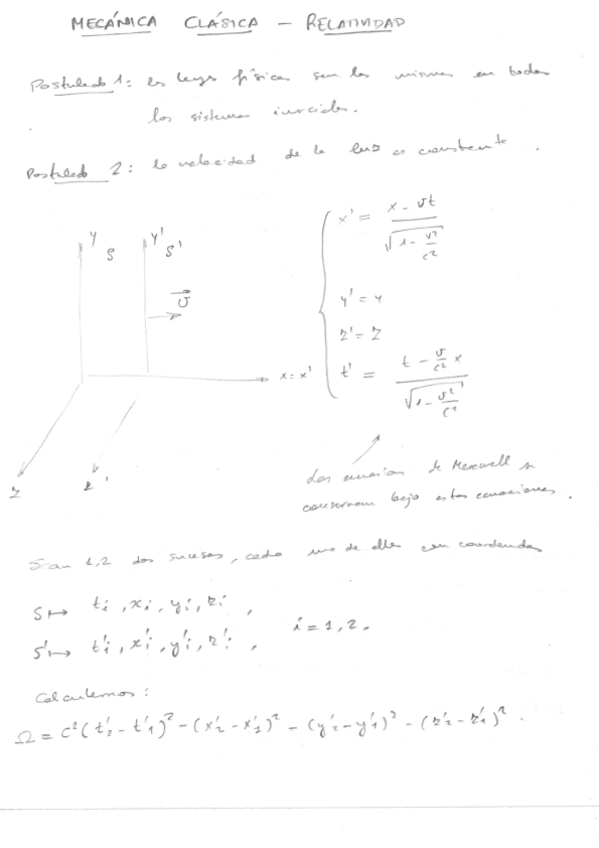 MECÁNICA CLÁSICA - RELATIVIDAD
Postulado 1: las leyes físicas son las mismas en todos
los sistemas inerciales.
Postulado 2: la velocidad de la luz es constante.
y S y' S'
v
x = x'
z z'
x' = (x - vt) / √(1 - v²/c²)
y' = y
z' = z
t' = (t - v/c² x) / √(1 - v²/c²)
Las ecuaciones de Maxwell se
conservan bajo estas ecuaciones.
Sean 1,2 dos sucesos, cada uno de ellos con coordenadas
S ↦ ti, xi, yi, zi,
S' ↦ t'i, x'i, y'i, z'i, i = 1, 2.
Calculemos:
Ω = c²(t'2 - t'1)² - (x'2 - x'1)² - (y'2 - y'1)² - (z'2 - z'1)².